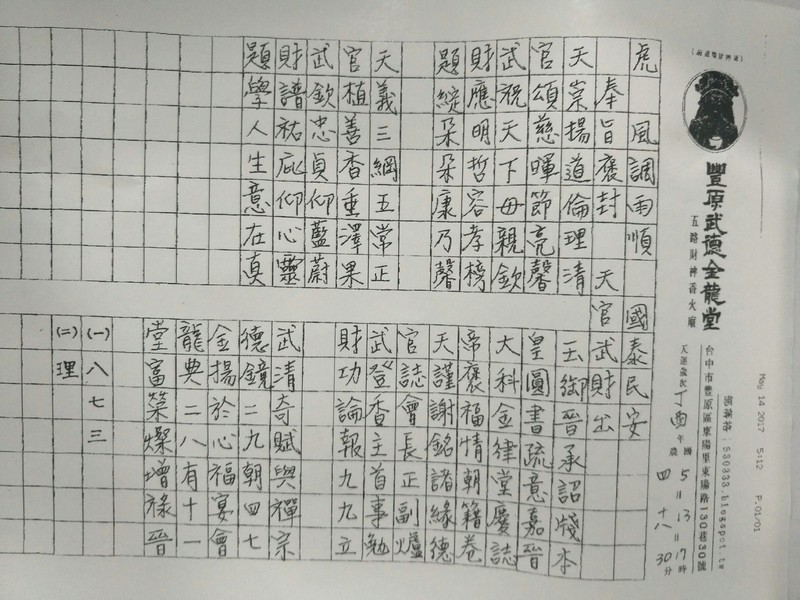 May 14 2017 5:12 P.01/01
部落格:530333.blogspot.tw
台中市豐原區東陽里東陽路130巷30號
天運歲次丁酉年 國5=13=17時
農四 十八 30分
豐原武德金龍堂
五路財神香火廟
虎 風調雨順 國泰民安
奉旨褒封 天官武財出
天崇揚道倫理清
官頌慈暉節亮馨
武祝天下毋親欽
財應明哲容孝榜
題綻朵朵康乃馨
天義三綱五常正
官植善香重澤果
武欽忠貞仰藍蔚
財譜祐庇仰心靈
題學人生意在真
玉御晉承詔牋本
皇圖書疏意嘉晉
大科金律堂慶誌
帝褒福情朝籍卷
天謹謝銘諸緣德
官誌會長正副爐
武登香主首事勉
財功論報九九立
武清奇賦與禪宗
德鏡二九朝四七
金揚於心福宴會
龍典二八有十一
堂富榮燦增祿晉
(一)八七三
(二)理